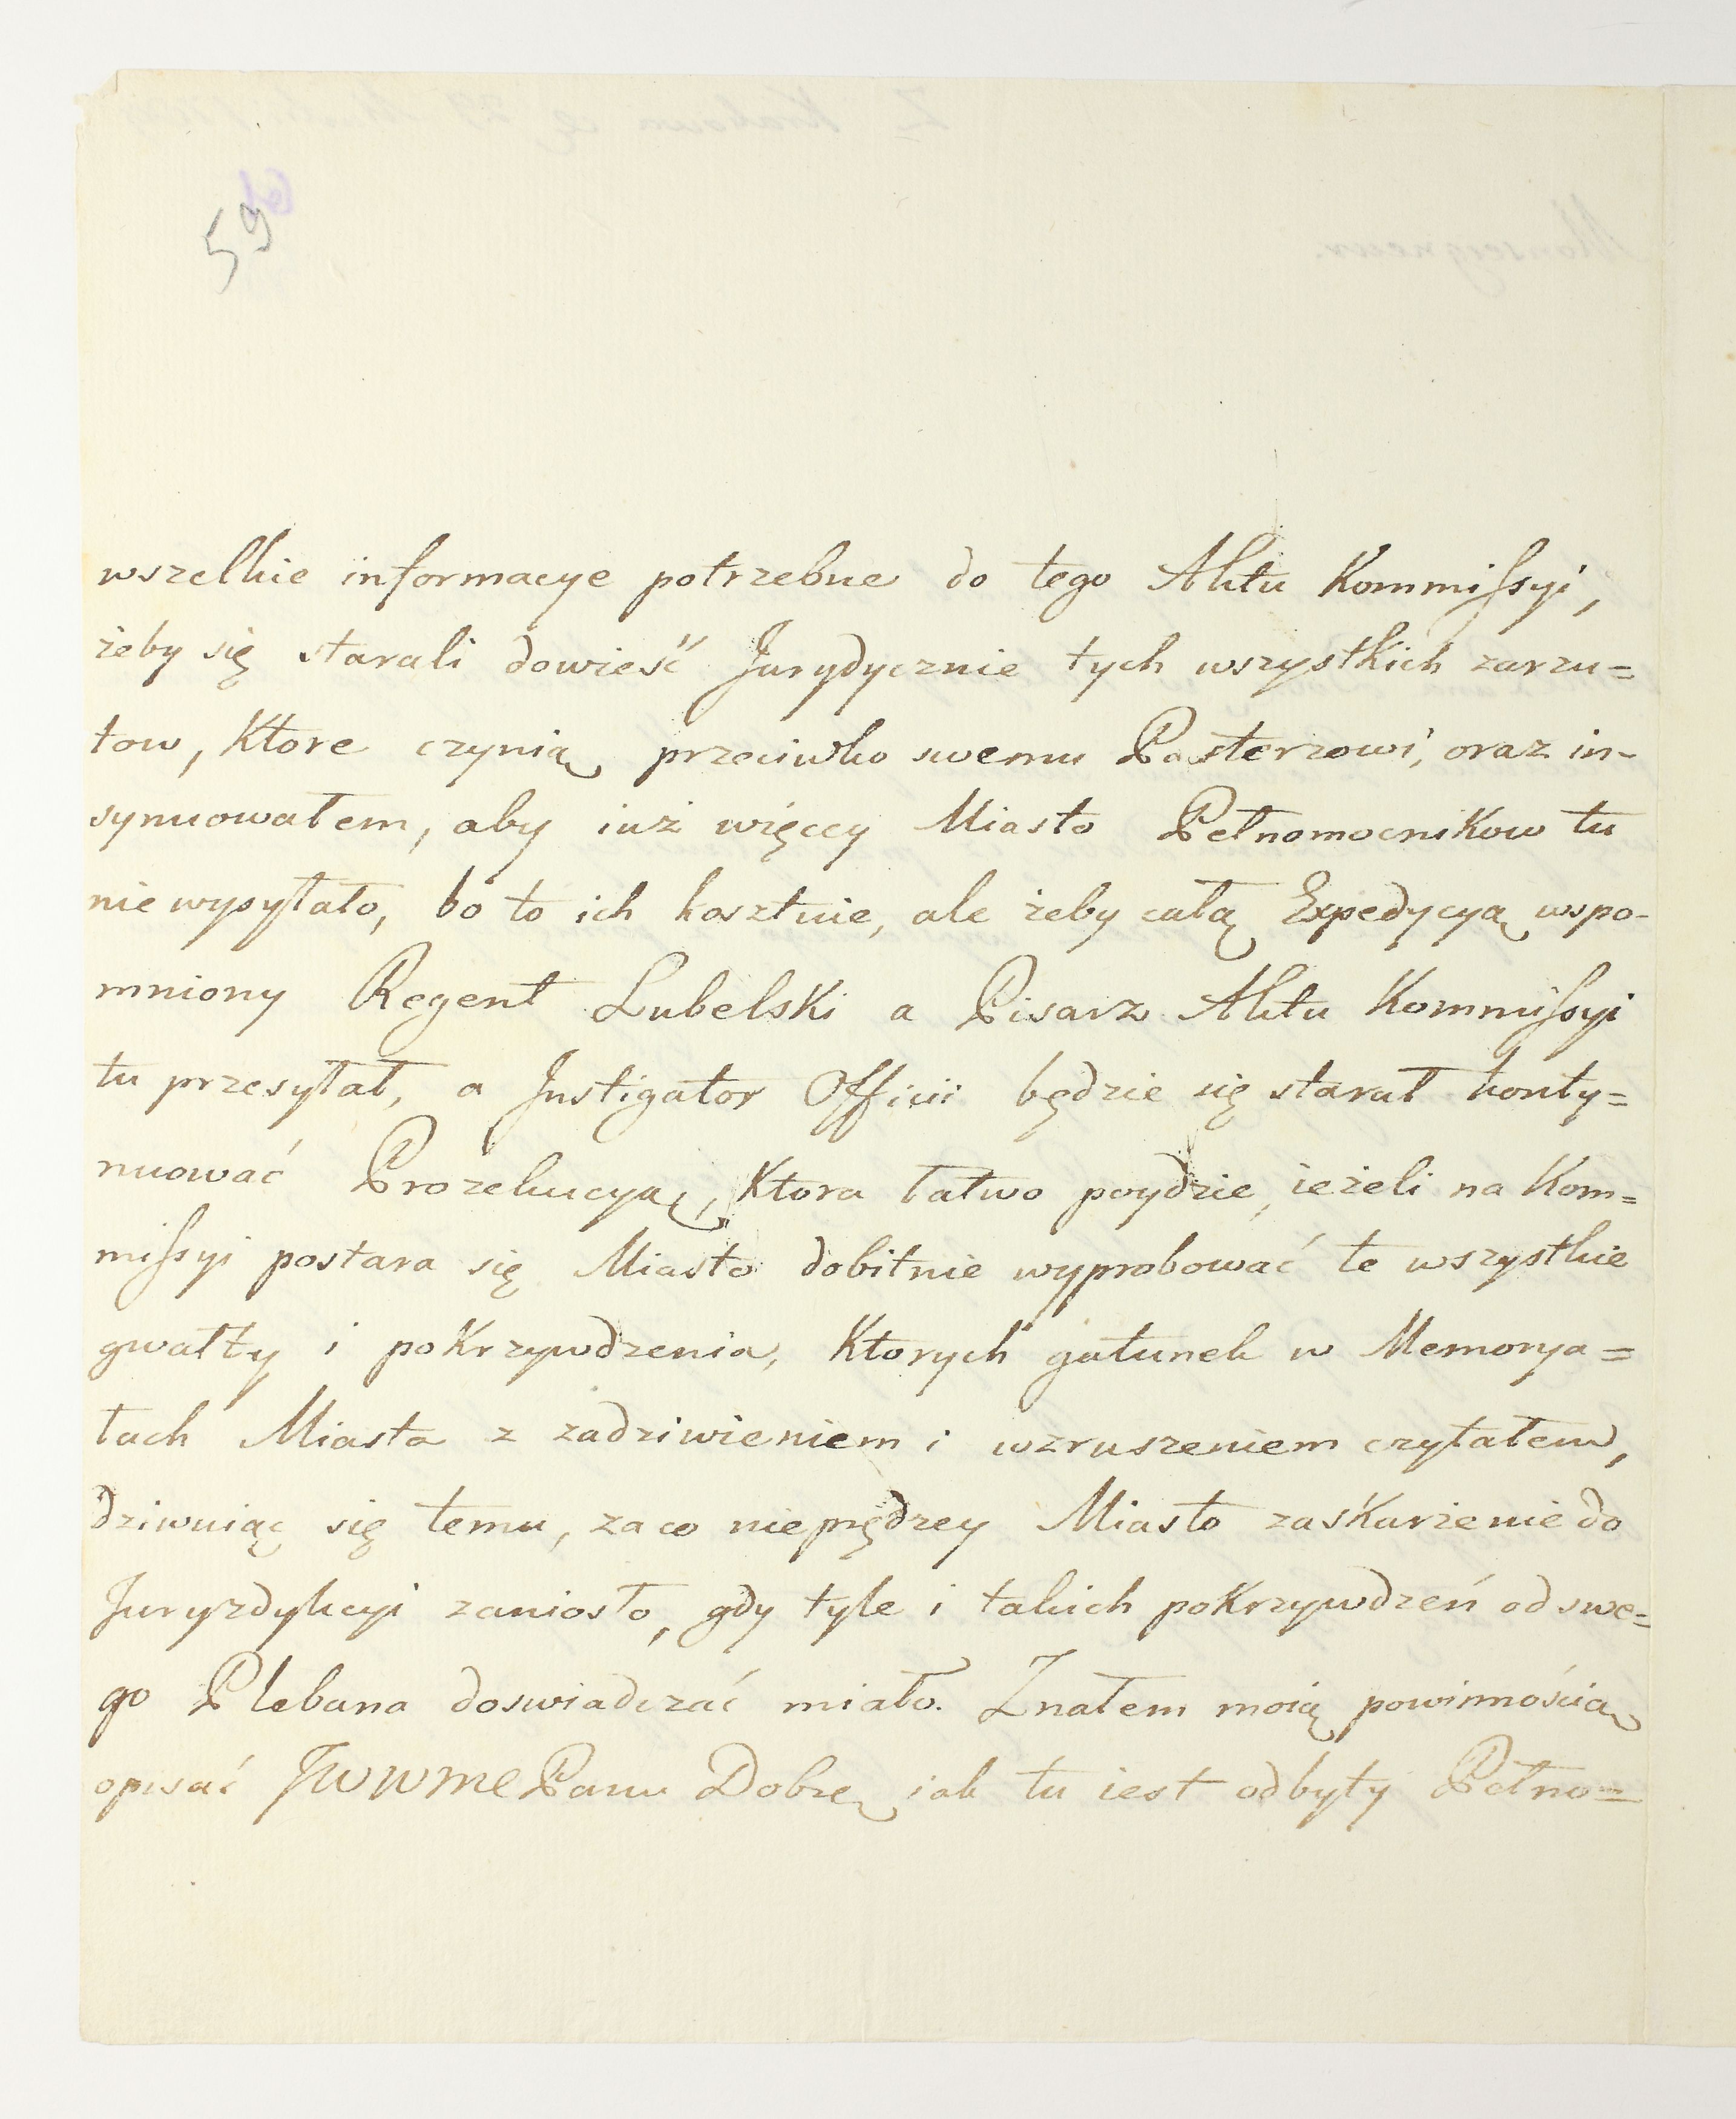 59
wszelkie informacye potrzebne do tego Aktu Kommissyi,
żeby się starali dowieść Jurydycznie tych wszystkich zarzu=
tow, Ktore czynią przeciwko swemu Pasterzowi, oraz in-
synuowałem, aby iuż więcey Miasto Pełnomocnikow tu
nie wysyłało, bo to ich kosztuie, ale żeby całą Expedycyą wspo-
mniony Regent Lubelski a Pisarz Aktu Kommissyi
tu przesyłał, a Instigator Officii będzie się starał konty=
nuować Prozekucyą, Ktora łatwo poydzie, ieżeli na Kom=
missyi postara się Miasto dobitnie wyprobować te wszystkie
gwałty i poKrzywdzenia, Ktorych gatunek w Memorya=
łach Miasta z zadziwieniem i wzruszeniem czytałem,
dziwuiąc się temu, za co nieprędzey Miasto zasKarżenie do
Juryzdykcyi zaniosło, gdy tyle i takich poKrzywdzeń od swe=
go Plebana doswiadczać miało. Znałem moią powinnością
opisać JWWMC Panu Dobrę iak tu iest odbyty Pełno=